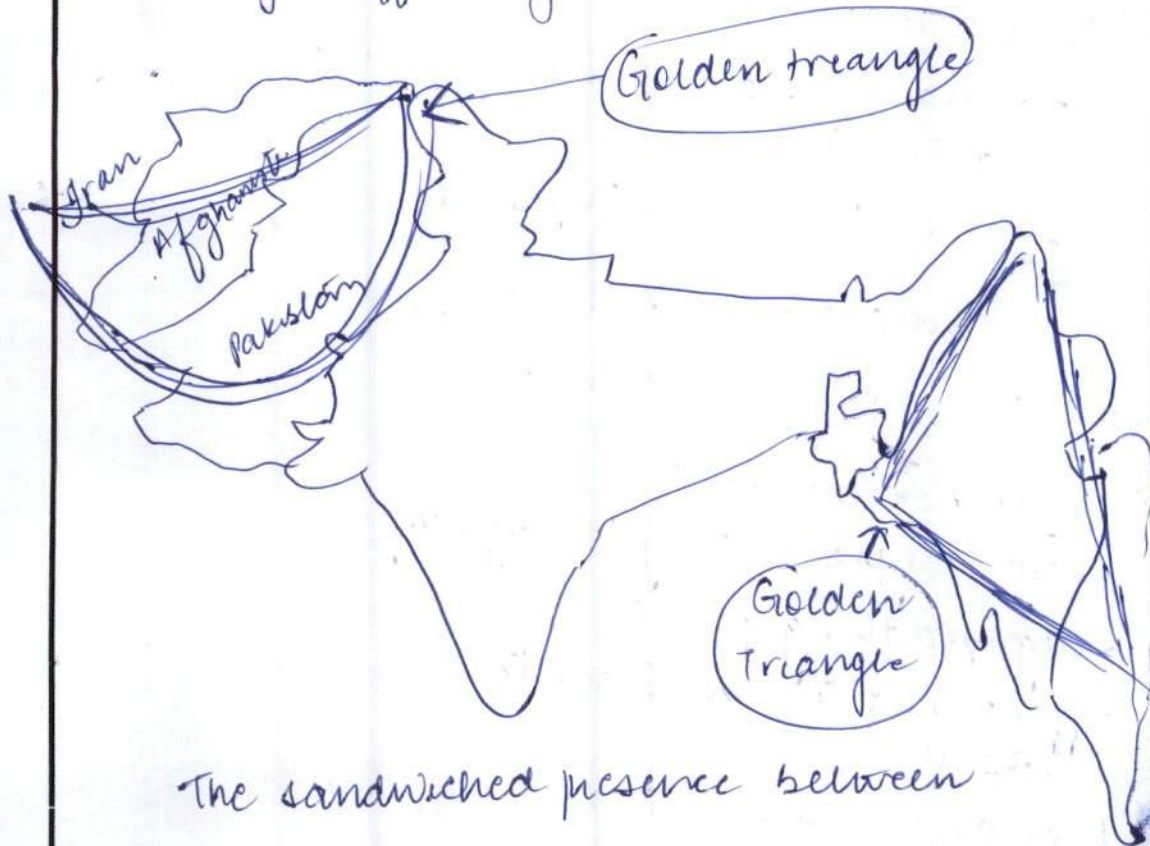 Golden treangle
Iran
Afghanist
Pakistan
Golden
Triangle
The sandwiched presence between